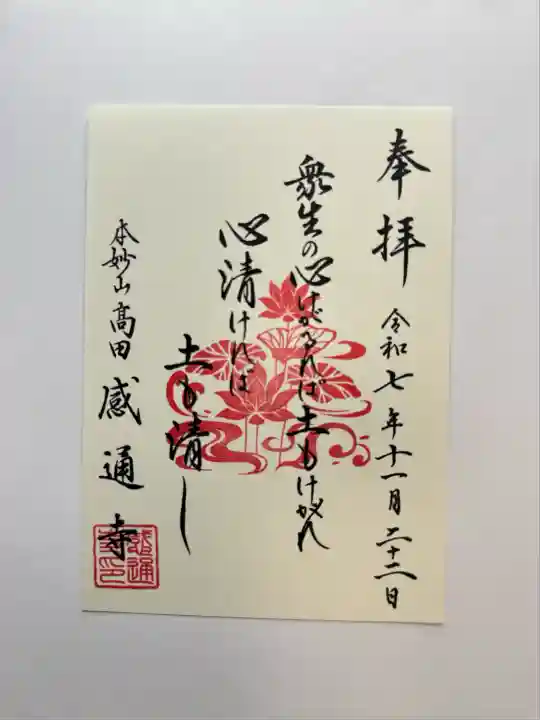 奉拝 令和七年十一月二十二日
衆生の心けがるれば土もけがれ
心清ければ
土も清し
本妙山高田感通寺
感通寺印